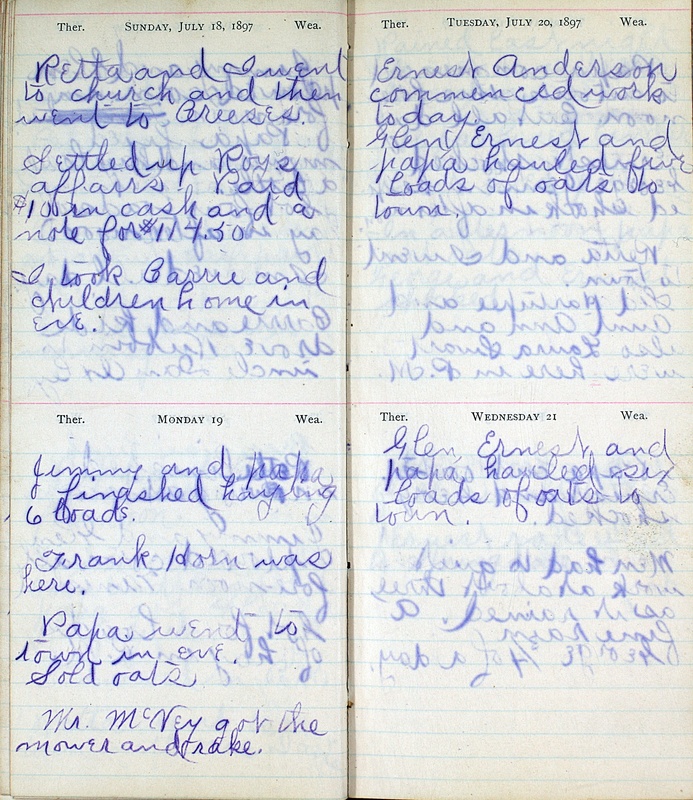 Ther. SUNDAY, JULY 18, 1897 Wea.
Retta and I went
to church and then
went to Breeses.
Settled up Roy's
affairs Paid
$10 in cash and a
note for $114.50
I took Carrie and
children home in
eve.
Ther. MONDAY 19 Wea.
Jimmy and papa
finished haying
6 loads.
Frank Horn was
here.
Papa went to
town in eve.
Sold oats
Mr. McVey got the
mower and rake.
Ther. TUESDAY, JULY 20, 1897 Wea.
Ernest Anderson
commenced work
today.
Glen Ernest and
papa hauled five
loads of oats to
town.
Ther. WEDNESDAY 21 Wea.
Glen, Ernest and
papa hauled six
loads of oats to
town.